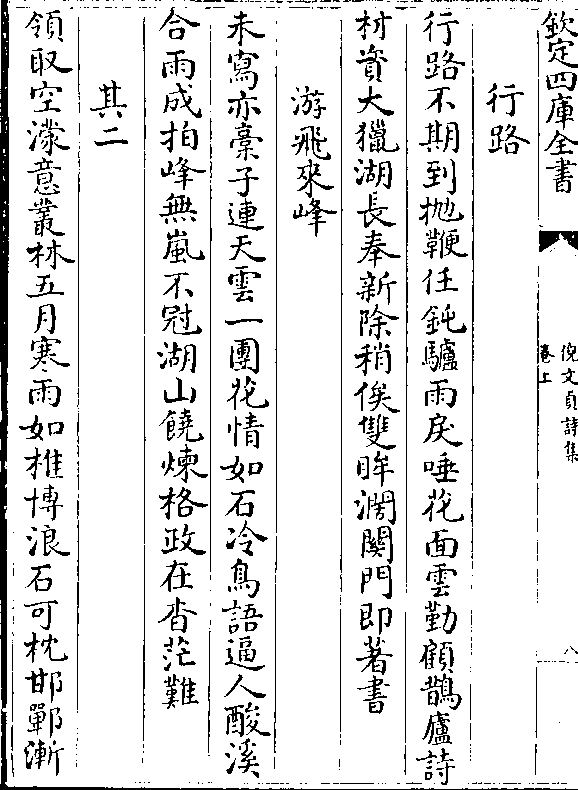 欽定四庫全書
倪文貞詩集
卷上
八
行路
行路不期到抛鞭任鈍驢雨戾唾花面雲勤顧鵲廬詩
材資大獵湖長奉新除稍俟雙眸濶關門即著書
游飛來峰
未寫亦藁子連天雲一團花情如石冷鳥語逼人酸溪
合雨成拍峰無嵐不冠湖山饒煉格政在杳茫難
其二
領取空濛意叢林五月寒雨如椎博浪石可枕邯鄲漸